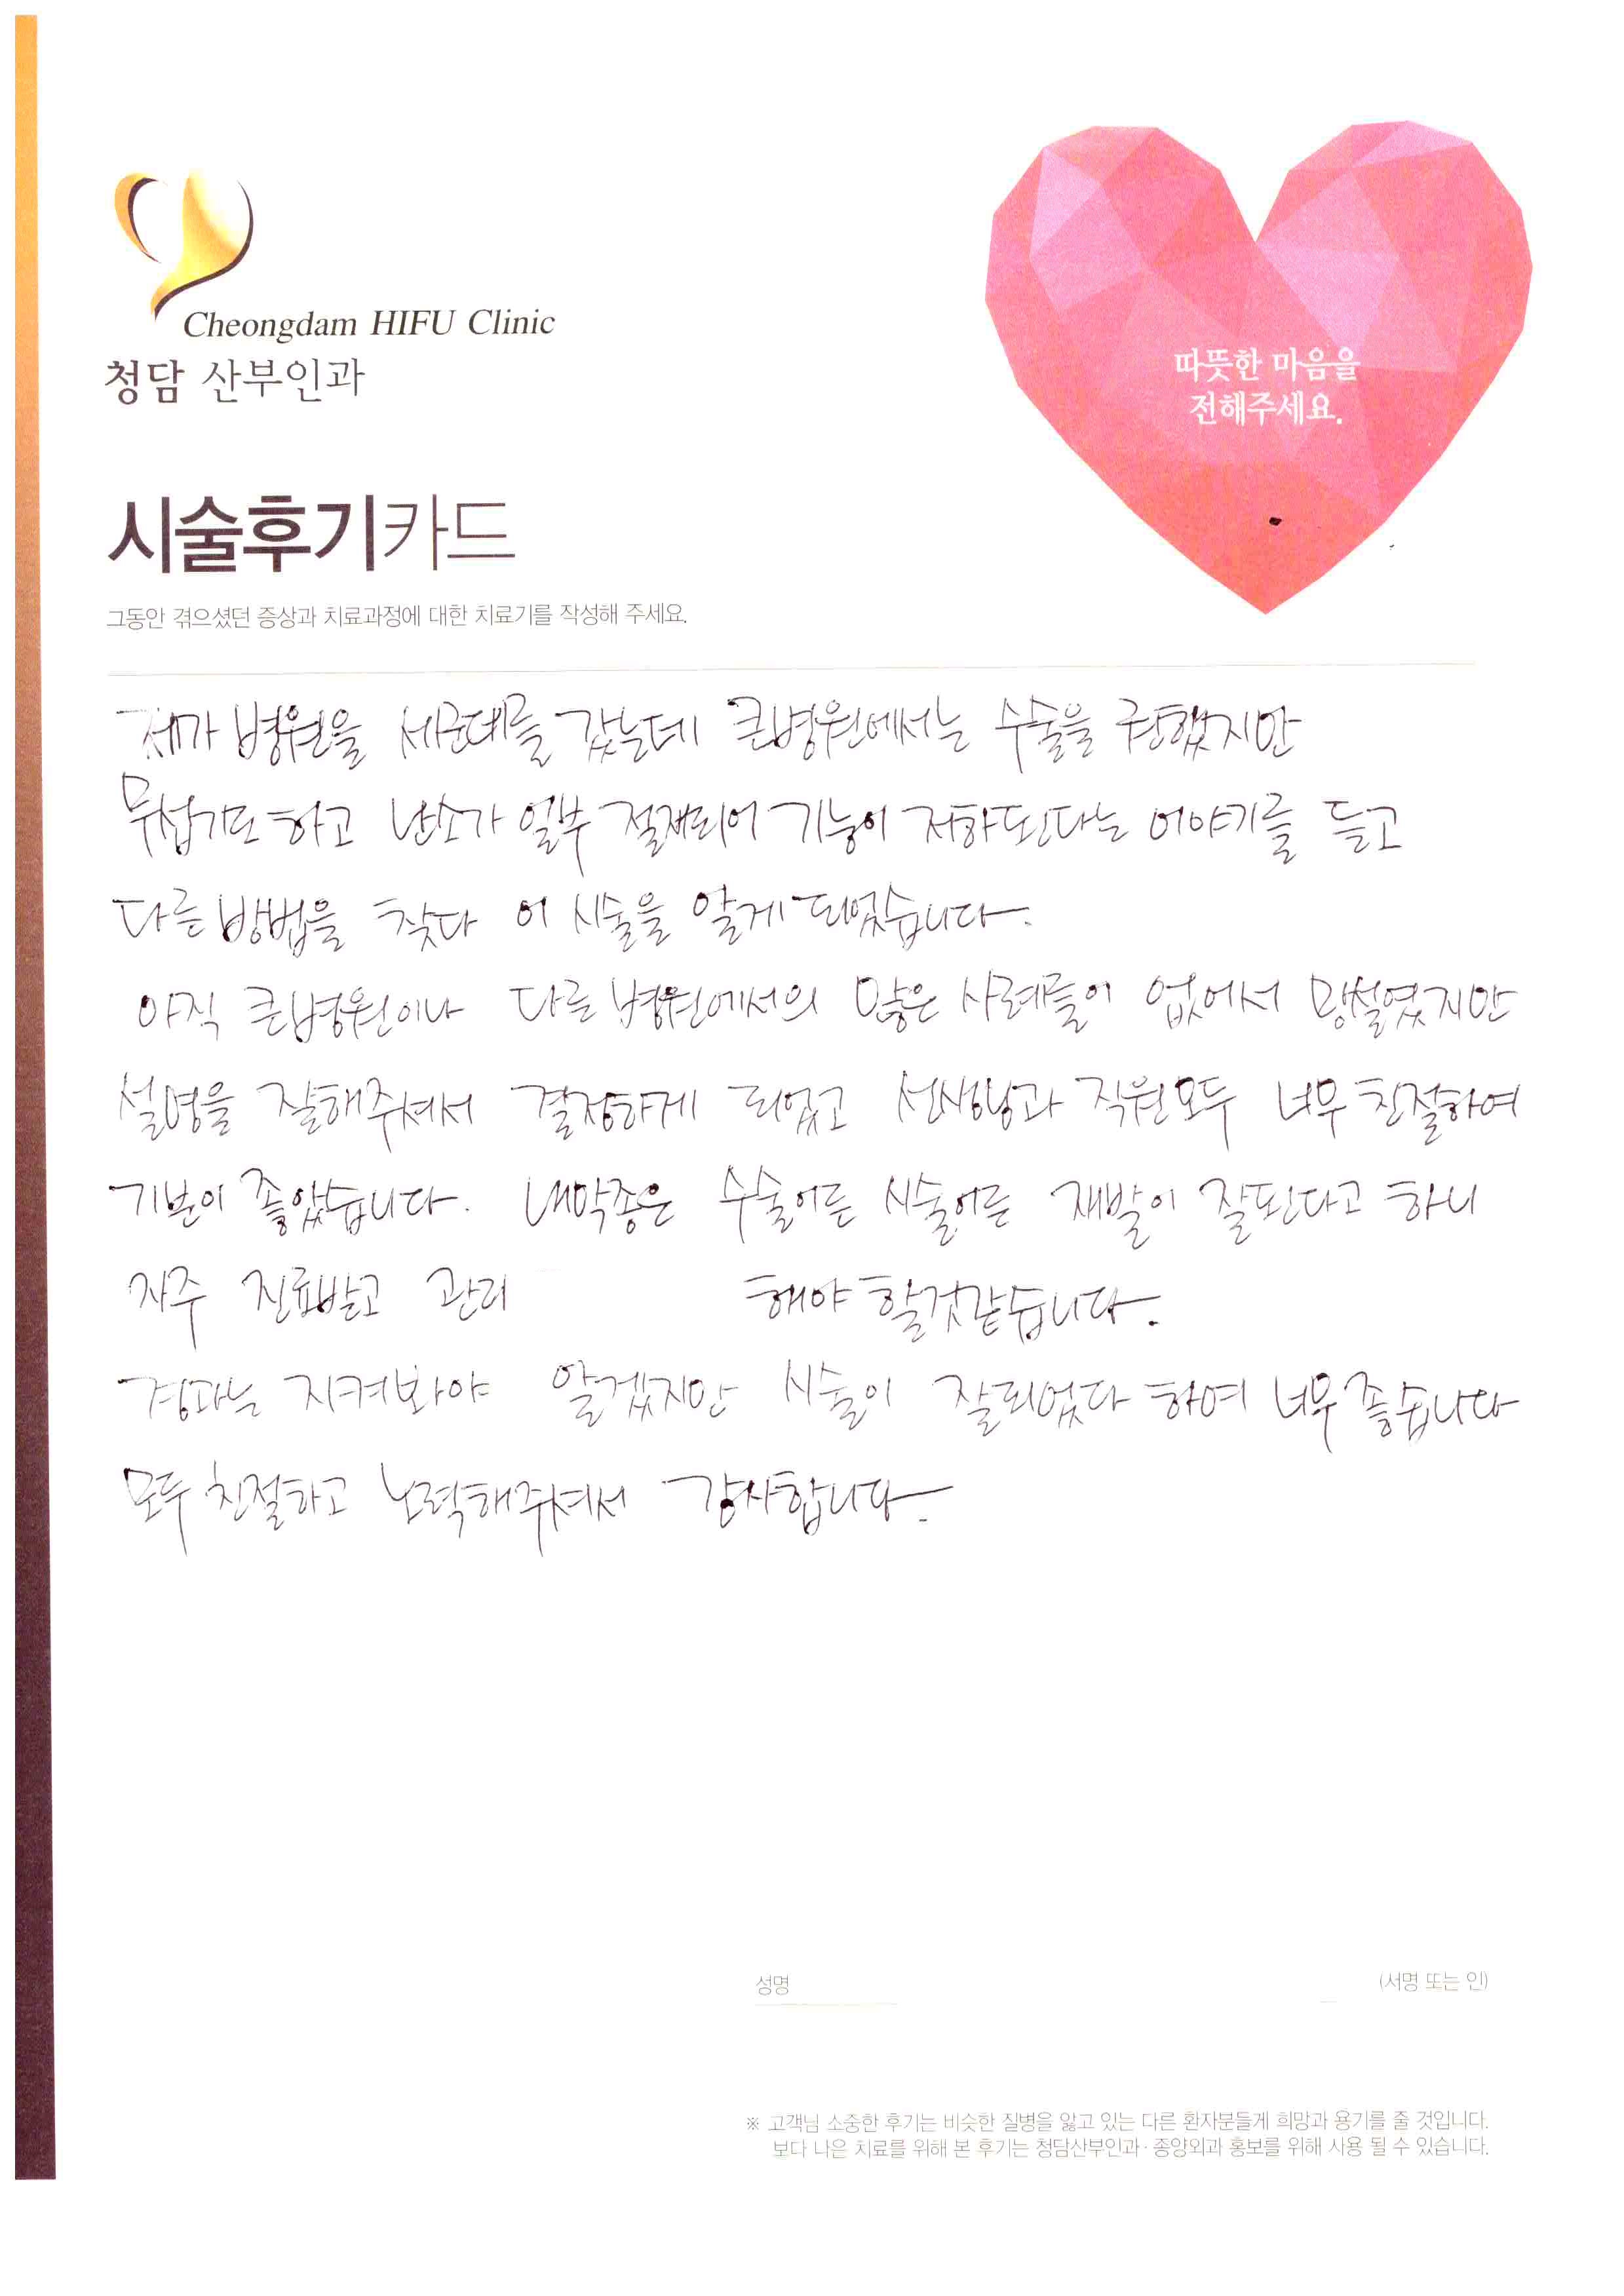 Cheongdam HIFU Clinic
청담 산부인과
따뜻한 마음을
전해주세요.
시술후기카드
그동안 겪으셨던 증상과 치료과정에 대한 치료기를 작성해 주세요.
제가 병원을 세군데를 갔는데 큰병원에서는 수술을 권했지만
무섭기도 하고 난소가 일부 절제되어 기능이 저하된다는 이야기를 듣고
다른 방법을 찾다 이 시술을 알게 되었습니다.
아직 큰병원이나 다른 병원에서의 많은 사례들이 없어서 망설였지만
설명을 잘해주셔서 결정하게 되었고 선생님과 직원모두 너무 친절하여
기분이 좋았습니다. 내막종은 수술이든 시술이든 재발이 잘된다고 하니
자주 진료받고 관리 해야 할것같습니다.
경과는 지켜봐야 알겠지만 시술이 잘되었다 하여 너무 좋습니다
모두 친절하고 노력해주셔서 감사합니다.
성명 (서명 또는 인)
※ 고객님 소중한 후기는 비슷한 질병을 앓고 있는 다른 환자분들게 희망과 용기를 줄 것입니다.
보다 나은 치료를 위해 본 후기는 청담산부인과 · 종양외과 홍보를 위해 사용 될 수 있습니다.